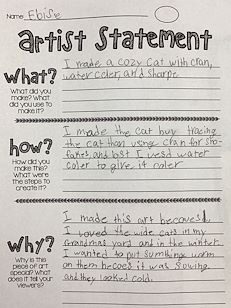 Name Ebise
artist Statement
What?
What did you
make? What
did you use to
make it?
I made a cozy cat with cran,
water coler, and sharpe
how?
How did you
make this?
What were
the steps to
create it?
I made the cat buy tracing
the cat than using cran for sho-
fake, and last I used water
coler to give it coler
Why?
Why is this
piece of art
special? What
does it tell your
viewers?
I made this art becaues
I loved the wide cats in my
Grandmas yard and in the winter
I wanted to put sumthing worm
on them becoes it was sowing
and they looked cold.